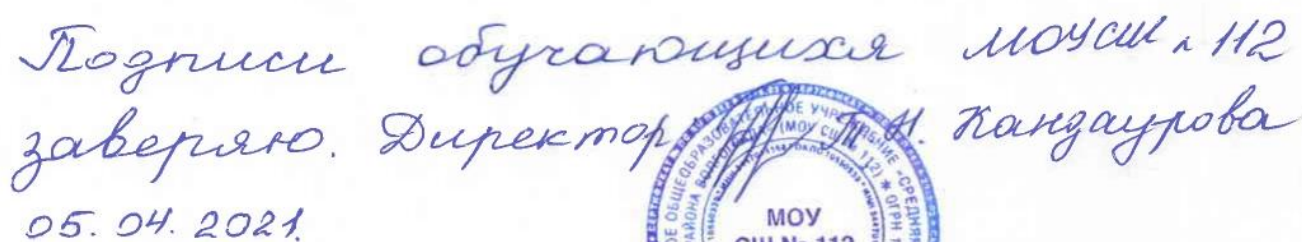 Подписи обучающихся МОУ СШ № 112
заверяю. Директор Т.Н. Кандаурова
05.04.2021.
МОУ
СШ № 112